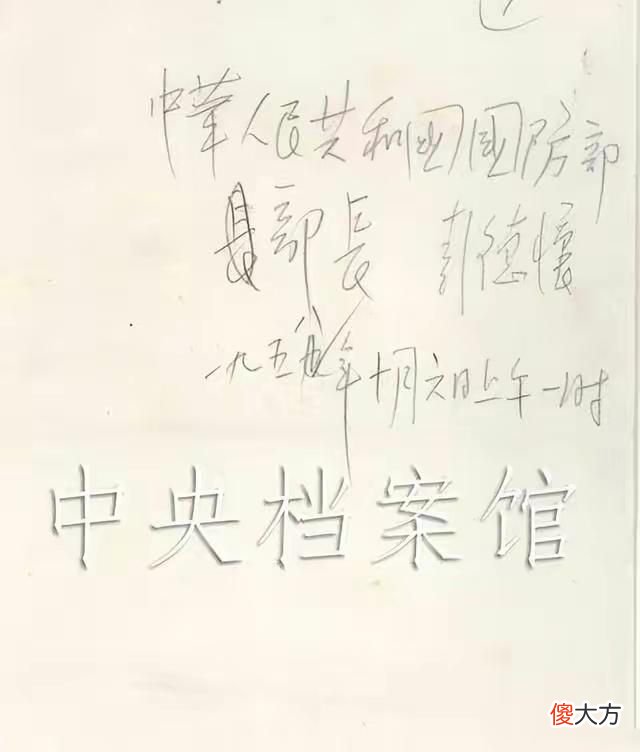 中華人民共和国國防部
部長 彭德懷
一九五八年十月六日上午一时
中央档案馆
傻大方